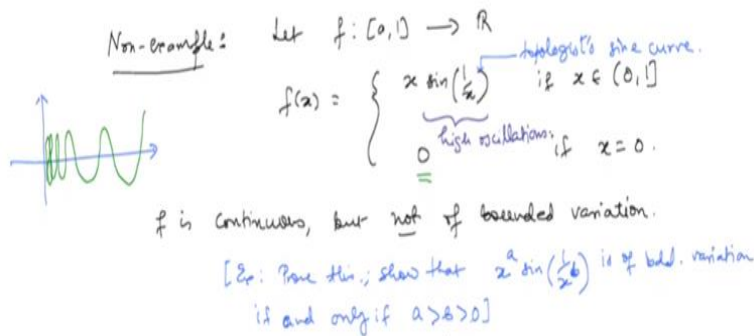 Non-example: Let f: [0,1] → R
topologist's sine curve.
f(x) = { x sin(1/x) if x ∈ (0,1]
high oscillations.
0 if x = 0.
f is continuous, but not of bounded variation.
[Ex: Prove this.; show that x^a sin(1/x^b) is of bdd. variation
if and only if a>b>0]